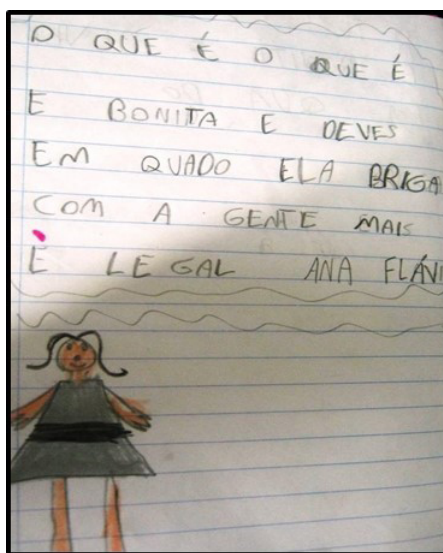 O QUE É O QUE É
E BONITA E DEVES
EM QUADO ELA BRIGA
COM A GENTE MAIS
É LEGAL ANA FLÁVI